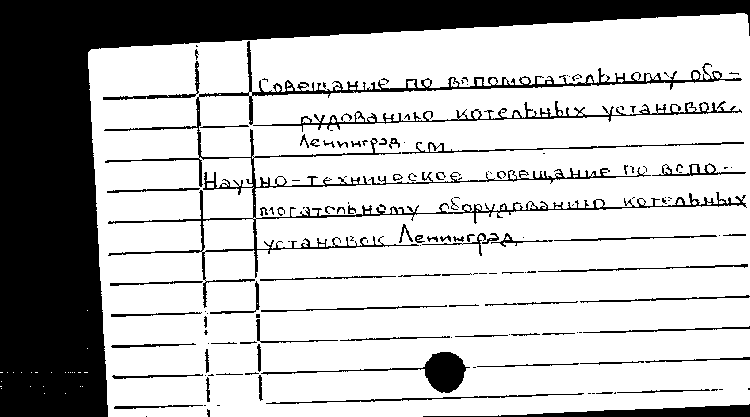 Совещание по вспомогательному обо-
рудованию котельных установок,
Ленинград см.
Научно-техническое совещание по вспо-
могательному оборудованию котельных
установок Ленинград.